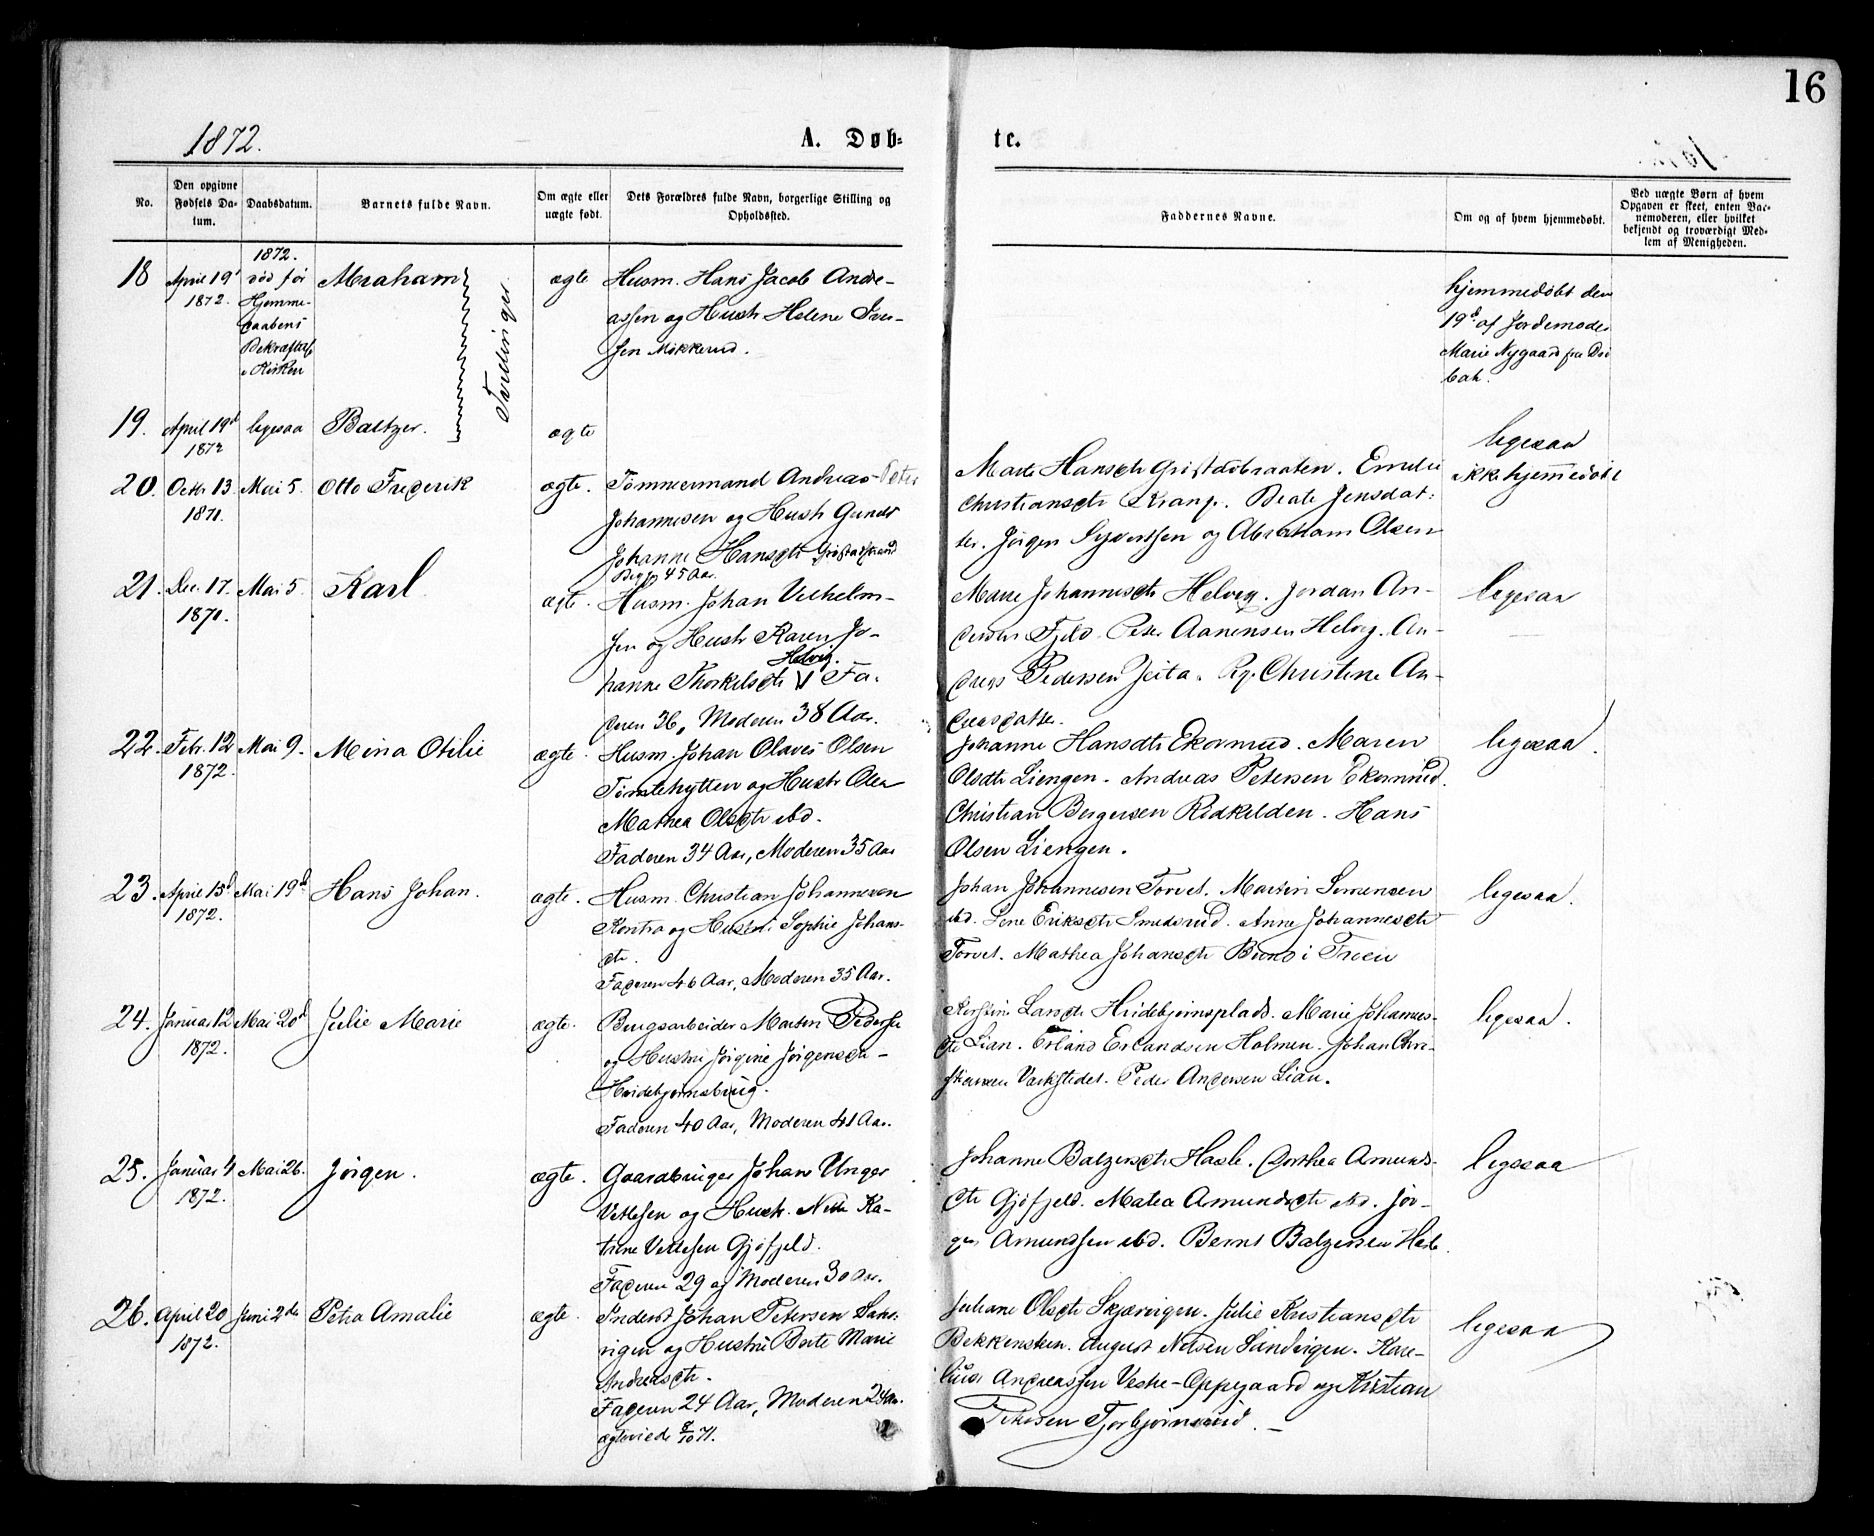 16
1872.
A. Døb-
te.
No.
Den opgivne Fødsels Da-tum.
Daabsdatum.
Barnets fulde Navn.
Om ægte eller uægte født.
Dets Forældres fulde Navn, borgerlige Stilling og Opholdssted.
Faddernes Navne.
Om og af hvem hjemmedøbt.
Ved uægte Børn af hvem Opgaven er skeet, enten Bar-nemoderen, eller hvilket bekjendt og troværdigt Med-lem af Menigheden.
18
April 19d
1872.
1872.
død før
Hjemme-
daabens
Bekræftelse
i Kirken
Abraham
Tvillinger
ægte
Husm. Hans Jacob Andre-
assen og Hustr Helene Iver-
sen Mikkerud.
hjemmedøbt den
19d af Jordemoder
Marie Nygaard fra Drø
bak.
19.
April 19d
1872
ligesaa
Baltzer.
ægte
ligesaa
20.
Octr. 13
1871.
Mai 5.
Otto Frederik
ægte.
Tømmermand Andreas Peter
Johannesen og Hustr
Johanne Hansdtr
45 Aar.
Hansdtr Emilie
Christiansdtr Krange. Beate Jensdat-
ter. Jørgen Syvertsen og Abraham Olsen
ikke hjemmedøbt
21.
Dec. 17.
1871.
Mai 5.
Karl
ægte.
Husm. Johan Vilhelm-
sen og Hustr Karen Jo-
hanne Thorkilsdtr Helvig. Fa-
deren 36, Moderen 38 Aar.
Marie Johannesdtr Helvig. Jordan An-
dersen Fjeld. Peter Aanensen Helvig. An-
dreas Pedersen Jeita. Pg. Christine An-
dreasdatter.
ligesaa
22.
Febr. 12
1872.
Mai 9.
Mina Otilie
ægte.
Husm. Johan Olaves Olsen
Tømtehytten og Hustr Olea
Mathea Olsdtr ibd.
Faderen 34 Aar, Moderen 35 Aar
Johanne Hansdtr Ekornrud. Maren
Olsdtr Liengen. Andreas Petersen Ekornrud.
Christian Bergersen Rødkilden. Hans
Olsen Liengen.
ligesaa.
23.
April 15d
1872.
Mai 19d
Hans Johan.
ægte.
Husm. Christian Johannesen
Kontra og Hustru Sophie Johans-
dtr.
Faderen 46 Aar, Moderen 35 Aar.
Johan Johannesen Torvet. Martin Simensen
ibd. Lene Eriksdtr Smedsrud. Anne Johannesdtr
Torvet. Mathea Johansdtr Bono i Troen
ligesaa.
24.
Januar 12
1872.
Mai 20d
Julie Marie
ægte.
Brugsarbeider Martin Pedersen
og Hustru Jørgine Jørgensdtr -
Hvidebjørnsbrug.
Faderen 40 Aar, Moderen 41 Aar.
Kerstin Larsdtr Hvidebjørnsplads. Marie Johannes-
dtr Lian. Erland Erlandsen Holmen. Johan Chri-
stiansen Værkstedet. Peder Andersen Lian.
ligesaa.
25.
Januar 4
1872.
Mai 26.
Jørgen.
ægte.
Gaardbruger Johan Unger
Vetlesen og Hustr. Nille Ka-
trine Vetlesen Gjøfjeld.
Faderen 29 og Moderen 30 Aar.
Johanne Balzersdtr Hasle. Dorthea Amunds-
dtr Gjøfjeld. Matea Amundsdtr ibd. Jør-
gen Amundsen ibd. Bernt Balzersen Hasle.
ligesaa
26.
April 20
1872.
Juni 2den
Petra Amalie
ægte.
Inderst Johan Petersen Sand-
vigen og Hustru Berte Marie
Andreasdtr.
Faderen 24 Aar, Moderen 24 Aar.
ægteviede 8/10 71.
Juliane Olsdtr Skjærvigen. Julie Kristiansdtr
Bekkensten. August Nilsen Sandvigen. Kare-
lius Andreassen Vestre-Oppegaard og Kristian
Petersen Torbjørnsrud.
ligesaa